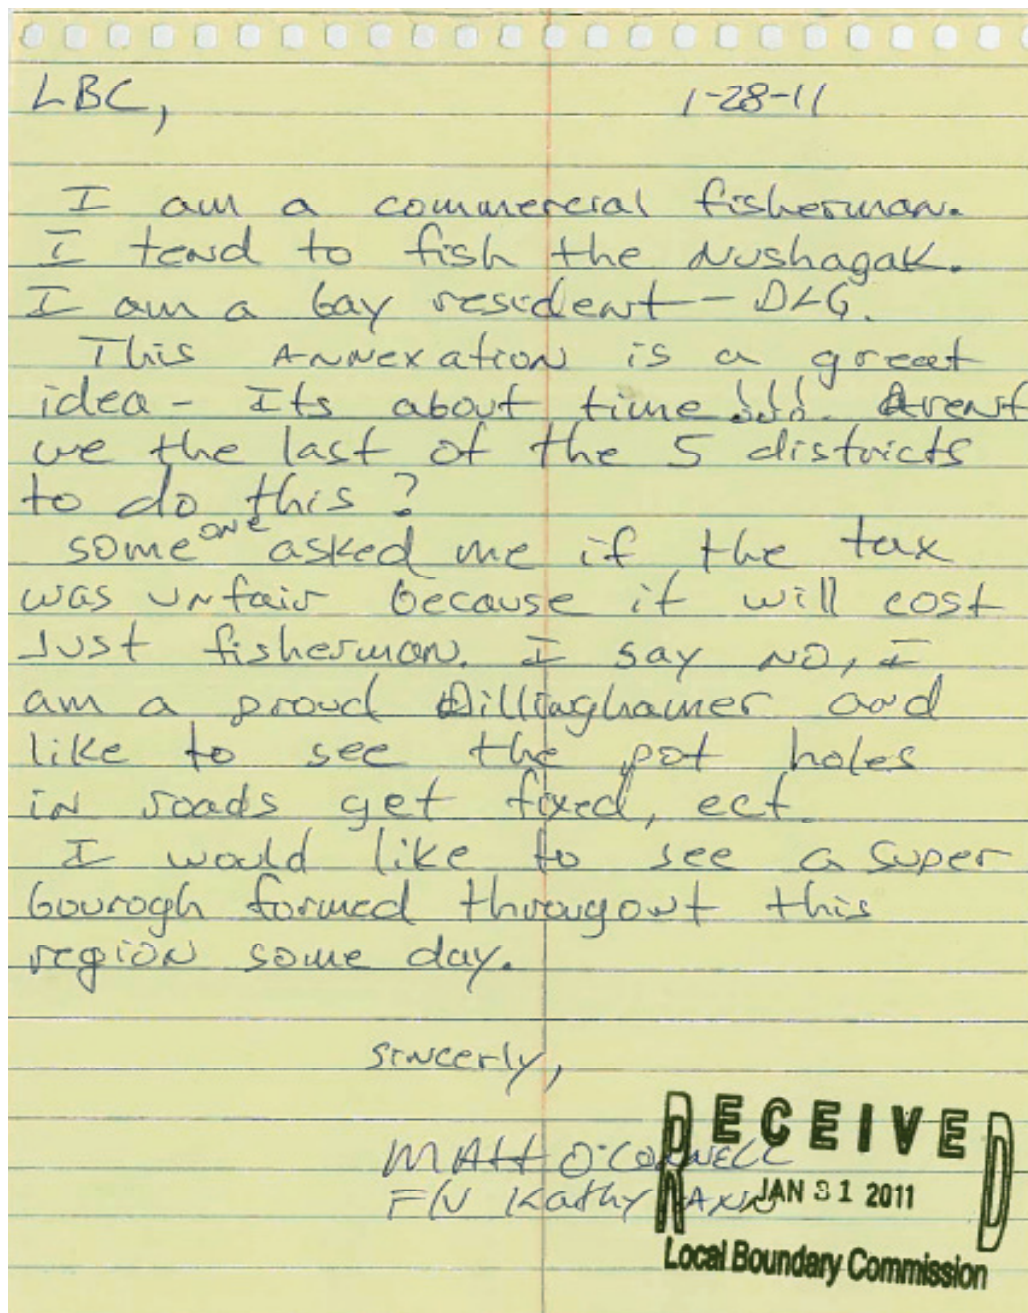 LBC, 1-28-11
I am a commercial fisherman.
I tend to fish the Nushagak.
I am a bay resident - DLG.
This Annexation is a great
idea - Its about time!!! Arent
we the last of the 5 districts
to do this?
someone asked me if the tax
was unfair because it will cost
Just fisherman. I say NO, I
am a proud Dillinghamer and
like to see the pot holes
in roads get fixed, ect.
I would like to see a super
bourogh formed througout this
region some day.
sincerly,
MATT O'CONNELL
F/V Kathy
RECEIVED
JAN 31 2011
Local Boundary Commission